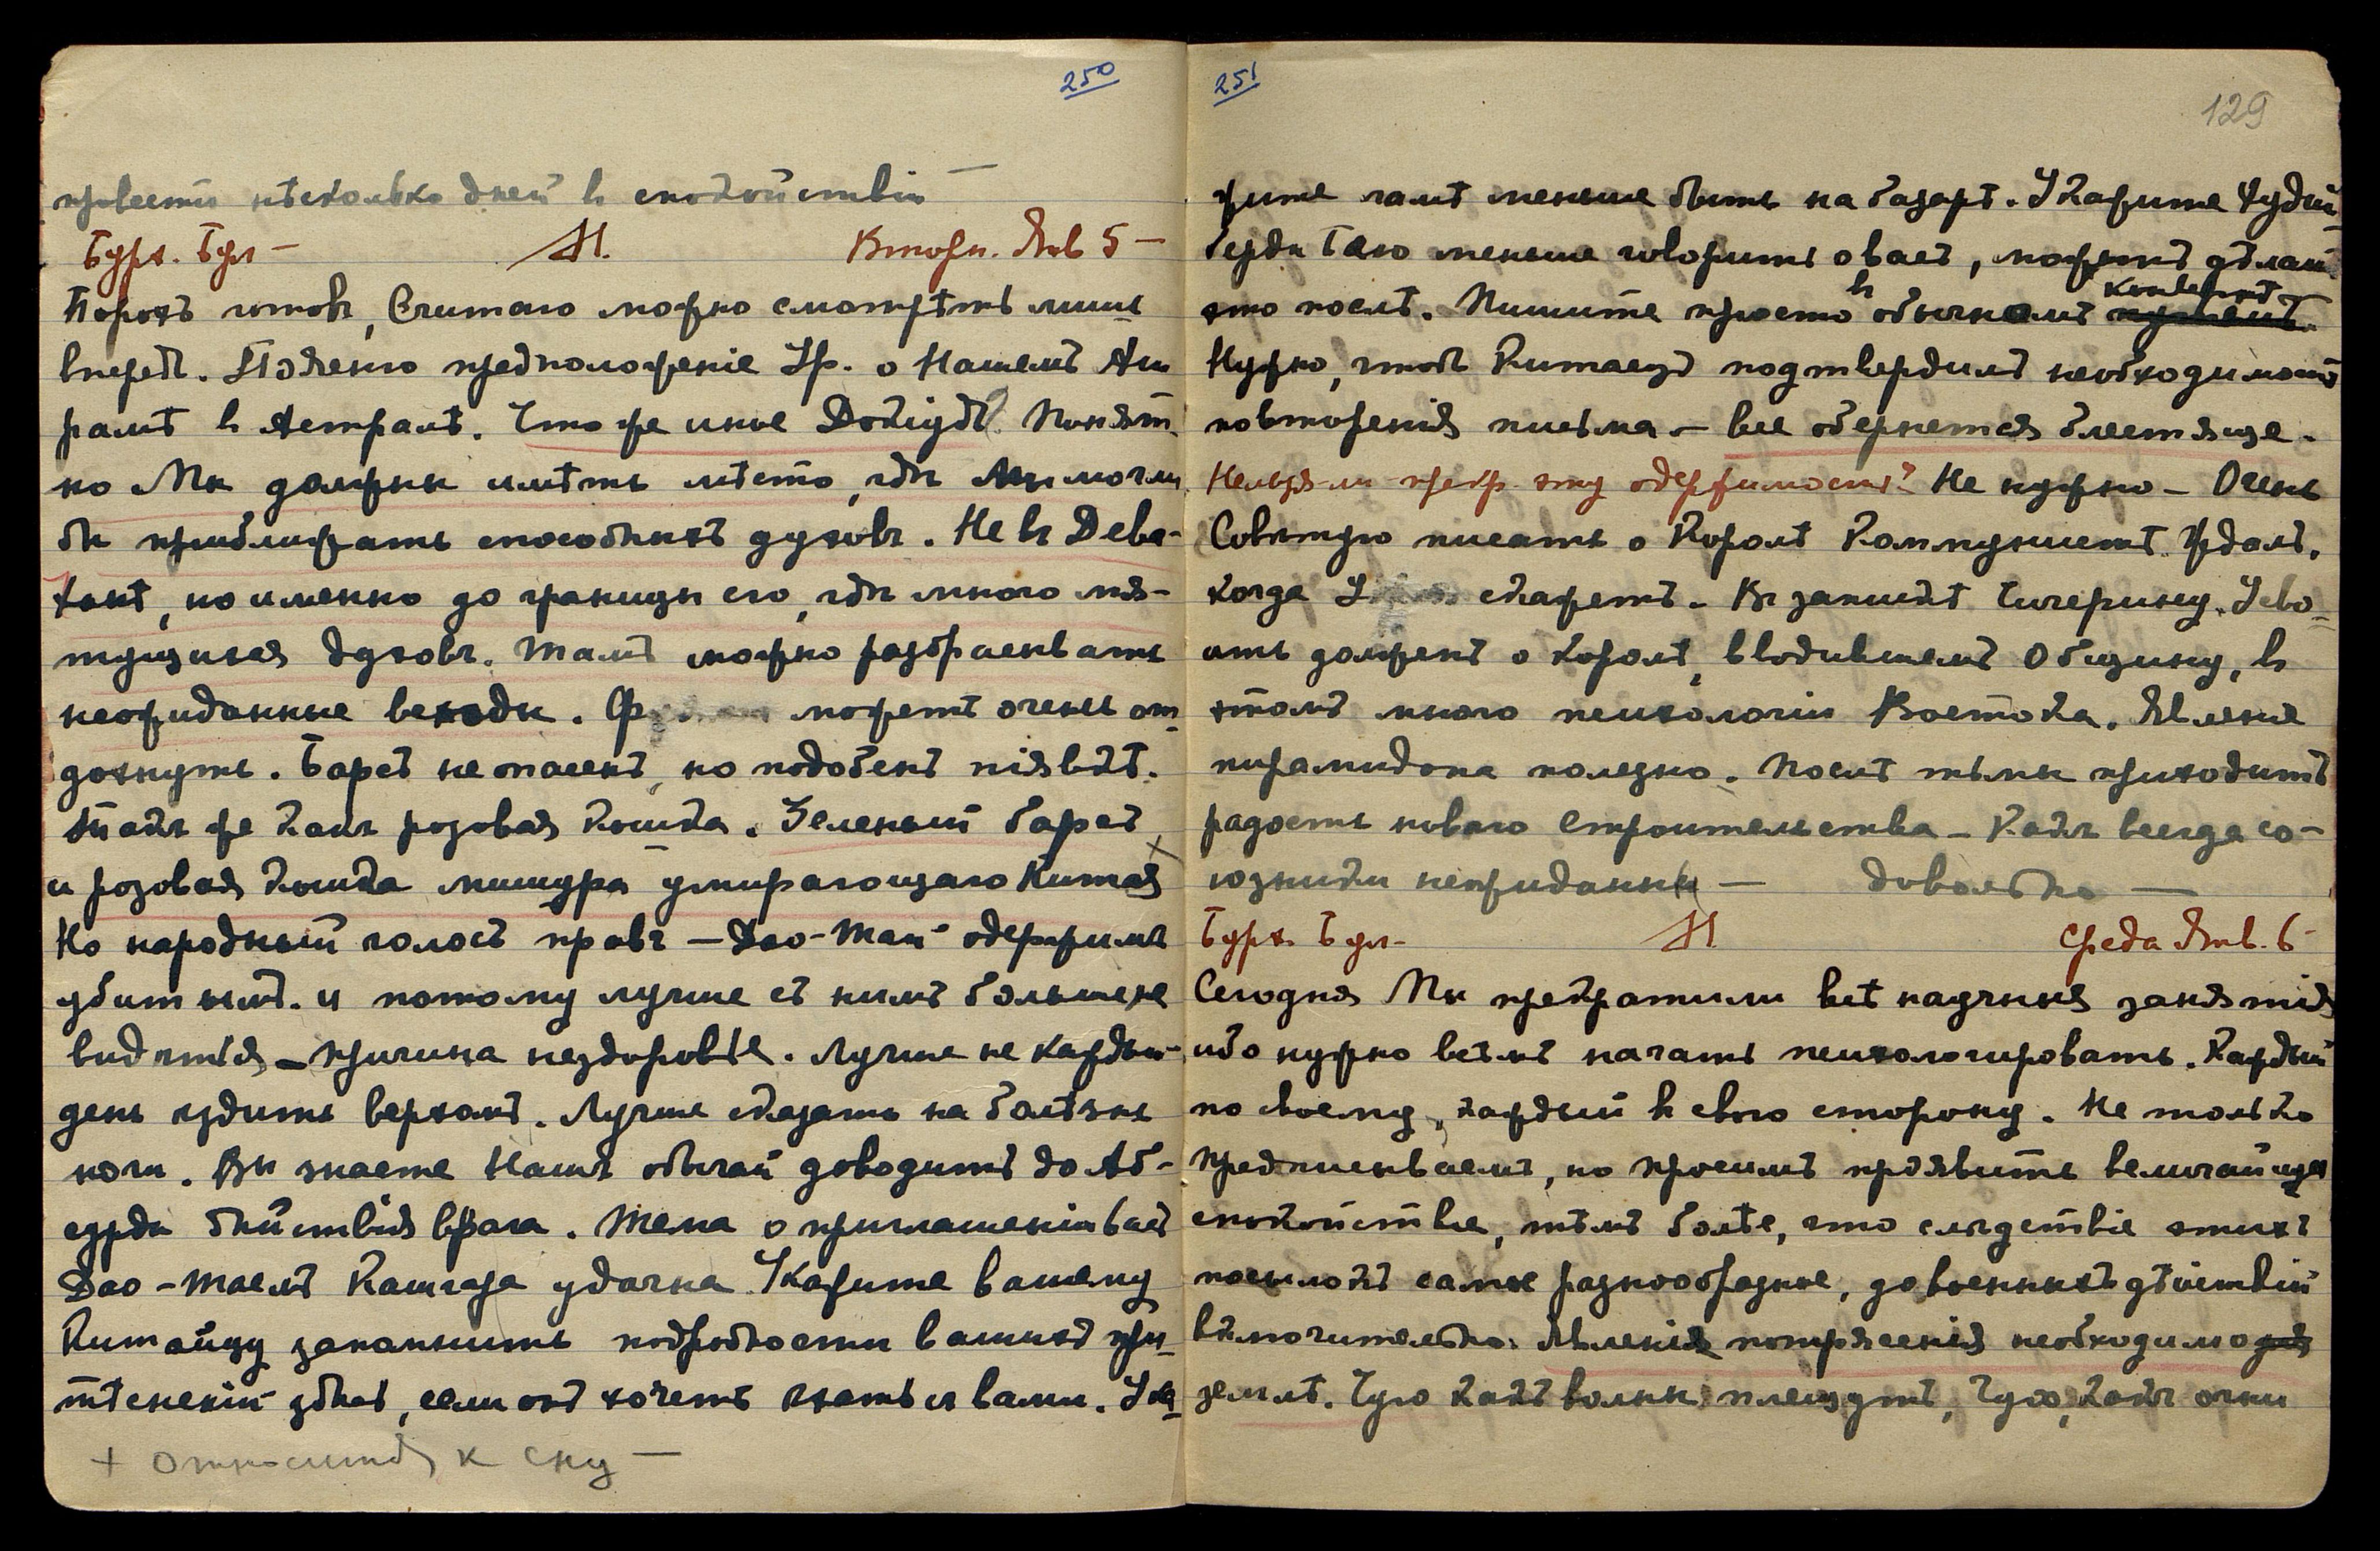 250
провести нѣсколько дней в спокойствіи —
Бурх. Бул — М. Вторн. Янв 5 —
Порохъ готовъ, Считаю можно смотрѣть лишь
впередъ. Пояснаю предположеніе Ур. о Нашемъ Аш
рамѣ в Астралѣ. Что же иное Докіудъ? Понят
но Мы должны имѣть мѣсто, гдѣ Мы могли
бы приближать способныхъ духовъ. Не въ Дева-
ханѣ, но именно до границы его, гдѣ много мя-
тущихся духовъ. Тамъ можно разбрасывать
неожиданные всходы. может очень от
дохнуть. Барсъ не опасенъ, но подобенъ піявкѣ.
Также какъ розовая кошка. Зеленый барсъ
и розовая кошка мишура умирающаго Китая +
Но народный голосъ правъ — Дао-Тай одержимъ
убитымъ. и потому лучше съ нимъ больше не
видѣться — причина нездоровье. Лучше не каждый
день ѣздить верхомъ. Лучше сказать на болѣзнь
ноги. Вы знаете Нашъ обычай доводить до Аб-
сурда дѣйствія врага. Тема о приглашеніи васъ
Дао-Таемъ Кашгара удачна. Укажите вашему
Китайцу запомнить подробности вашихъ при
тѣсненій здѣсь, если онъ хочетъ ѣхать с вами. Ука
+ относится к сну —
251
129
жите ламѣ меньше быть на базарѣ. Укажите Худай
берды Баю меньше говорить о васъ, можетъ дѣлать
это послѣ. Пишите просто в обычномъ конвертѣ
Нужно, чтобъ Китаецъ подтвердилъ необходимость
повторенія письма — все обернется блестяще.
Нельзя-ли прекр. эту одержимость? Не нужно — Очень
Совѣтую писать о Королѣ Коммунистѣ. Ждалъ,
когда скажетъ. Въ запискѣ Чичерину. Усво
ить долженъ о королѣ, вводившемъ Общину, в
этомъ много психологіи Востока. Явленіе
пирамидона полезно. Послѣ тьмы приходитъ
радость новаго строительства — Какъ всегда со-
юзники неожиданны — довольно —
Бурх. Бул — М. Среда Янв. 6 —
Сегодня Мы прекратили всѣ научныя занятія
ибо нужно всѣмъ начать психологировать. Каждый
по своему, каждый в свою сторону. Не только
предписываемъ, но просимъ проявить величайшее
спокойствіе, тѣмъ болѣе, что слѣдствіе этихъ
посылокъ самые разнообразные, до военныхъ дѣйствій
включительно. Явленія потрясенія необходимо для
землѣ. Чую какъ волны плещутъ, Чую, какъ огни